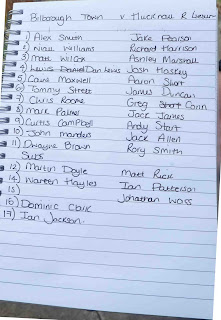 Bilborough Town v Hucknall R Leisure
1) Alex Smith Jake Pearson
2) Niall Williams Richard Harrison
3) Matt Wilcox Ashley Marshall
4) Lewis Daniel Dan Lewis Josh Haskey
5) Caine Maxwell Aaron Short
6) Tommy Street James Duncan
7) Chris Roome Greg Short Conn
8) Mark Palmer Jack James
9) Curtis Campbell Ardy Start
10) John Manders Jack Allen
11) Dwayne Brown Rory Smith
Subs
12) Martin Doyle Matt Rick
14) Warren Hayles Ian Patterson
15) Jonathan Woss
16) Dominic Clark
17) Ian Jackson